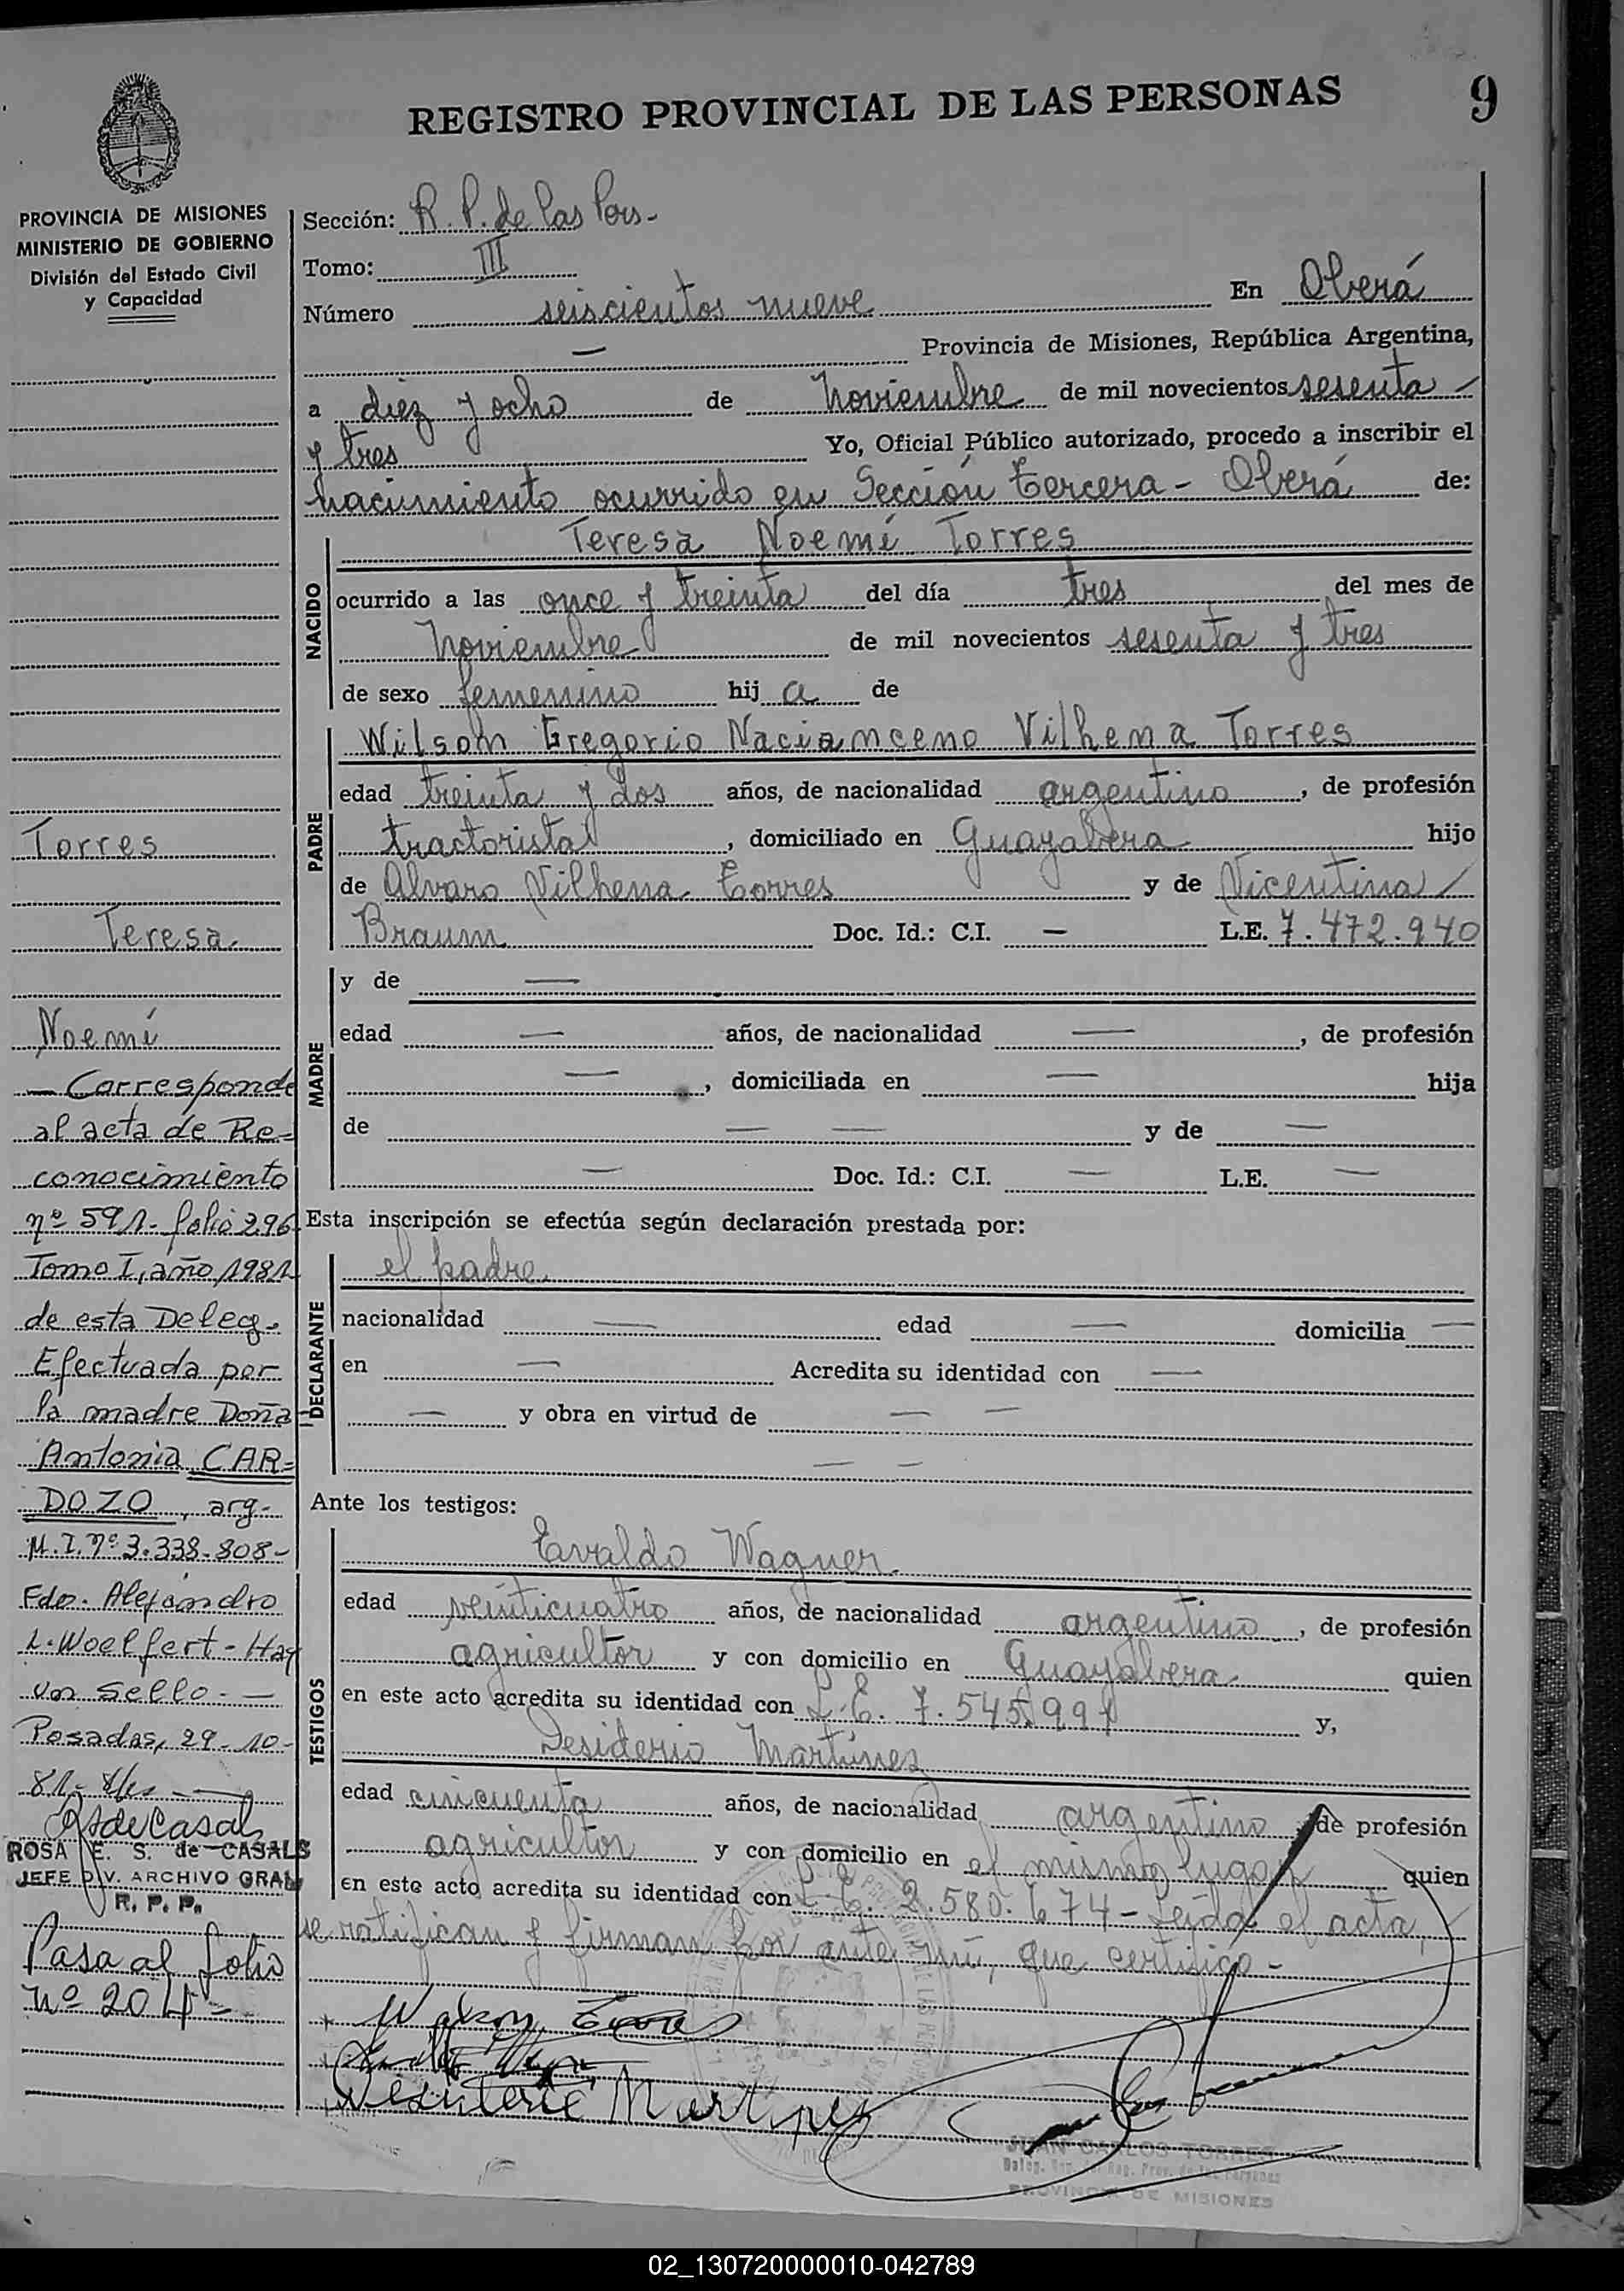 REGISTRO PROVINCIAL DE LAS PERSONAS
9
PROVINCIA DE MISIONES
MINISTERIO DE GOBIERNO
División del Estado Civil
y Capacidad
Sección: R. P. de las Pers-
Tomo: III
Número seiscientos nueve En Oberá
— Provincia de Misiones, República Argentina,
a diez y ocho de Noviembre de mil novecientos sesenta
y tres Yo, Oficial Público autorizado, procedo a inscribir el
nacimiento ocurrido en Sección tercera - Oberá de:
NACIDO
Teresa Noemí Torres
ocurrido a las once y treinta del día tres del mes de
Noviembre de mil novecientos sesenta y tres
de sexo femenino hij a de
PADRE
Wilsom Gregorio Naciamceno Vilhena Torres
edad treinta y dos años, de nacionalidad argentino, de profesión
tractorista, domiciliado en Guayabera hijo
de Alvaro Vilhena Torres y de Vicentina
Braum Doc. Id.: C.I. — L.E. 7.472.940
MADRE
y de —
edad — años, de nacionalidad —, de profesión
—, domiciliada en — hija
de — — y de —
— Doc. Id.: C.I. — L.E. —
Esta inscripción se efectúa según declaración prestada por:
DECLARANTE
el padre
nacionalidad — edad — domicilia —
en — Acredita su identidad con —
— y obra en virtud de — —
— —
Ante los testigos:
TESTIGOS
Evaldo Wagner
edad veinticuatro años, de nacionalidad argentino, de profesión
agricultor y con domicilio en Guayabera quien
en este acto acredita su identidad con L.E. 7.545.991 y,
Desiderio Martínez
edad cincuenta años, de nacionalidad argentino de profesión
agricultor y con domicilio en el mismo lugar quien
en este acto acredita su identidad con L.E. 2.580.674 - Leída el acta,
se ratifican y firman por ante mí, que certifico -
Torres
Teresa
Noemí
— Corresponde
al acta de Re=
conocimiento
nº 591- folio 296
Tomo I, año 1981
de esta Deleg.
Efectuada por
la madre Doña
Antonia CAR=
DOZO, arg-
M.I. nº 3.338.808-
Fdo. Alejandro
L. Woelfert - Hay
un sello. —
Posadas, 29-10-
81-
ROSA E. S. de CASALS
JEFE DIV. ARCHIVO GRAL
R. P. P.
Pasa al folio
Nº 204-
Martinez
JUAN CARLOS TORRES
PROVINCIA DE MISIONES
02_130720000010-042789